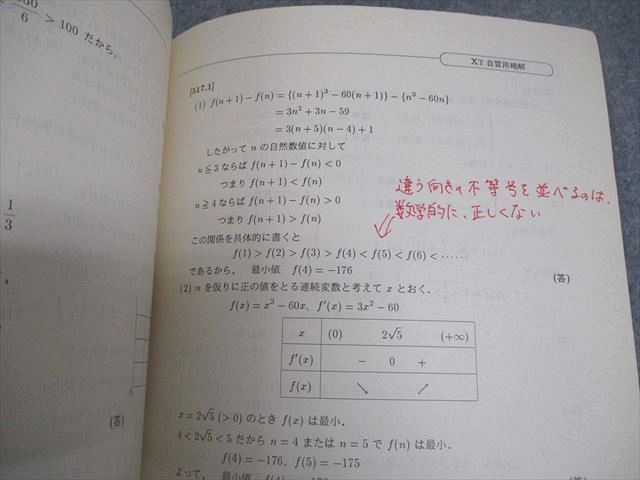 > 100 だから,
6
1
3
(答)
XT 自習用略解
[517.1]
(1) f(n+1)−f(n)={(n+1)³−60(n+1)}−{n³−60n}
=3n²+3n−59
=3(n+5)(n−4)+1
したがって n の自然数値に対して
n≦3ならば f(n+1)−f(n)<0
つまり f(n+1)<f(n)
n≧4ならば f(n+1)−f(n)>0
つまり f(n+1)>f(n)
違う向きの不等号を並べるのは、
数学的に、正しくない
この関係を具体的に書くと
f(1)>f(2)>f(3)>f(4)<f(5)<f(6)<……
であるから, 最小値 f(4)=−176
(答)
(2) n を仮りに正の値をとる連続変数と考えて x とおく.
f(x)=x³−60x, f′(x)=3x²−60
x (0) 2√5 (+∞)
f′(x) − 0 +
f(x) ↘ ↗
x=2√5 (>0) のとき f(x) は最小.
4<2√5<5 だから n=4 または n=5 で f(n) は最小.
f(4)=−176, f(5)=−175
よって, 最小値 f(4)
(答)